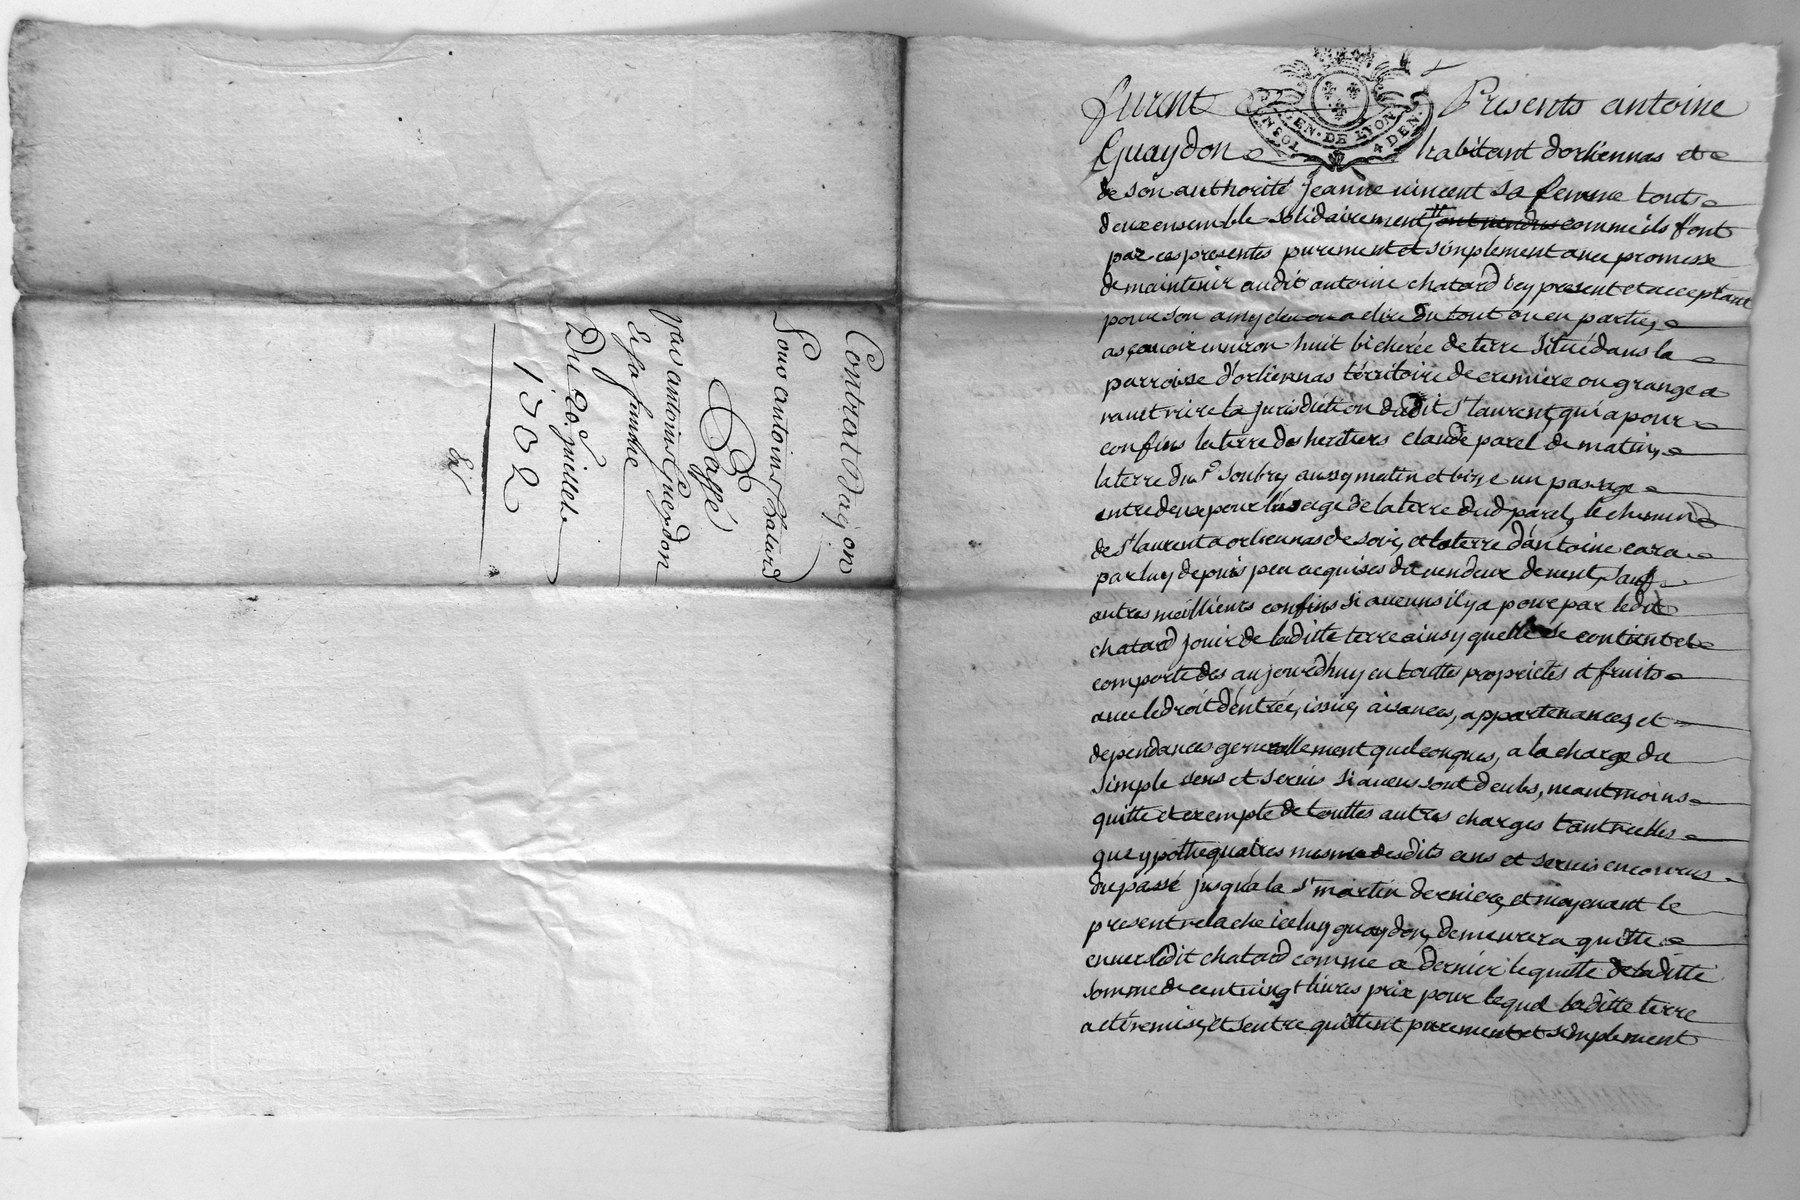 Contrat d'aquion
Pour antoine Chatard
Passé
par antoine Gueydon
et sa femme
Du 20e juillet
1702
GEN · DE LYON
4 DEN
furent Presents antoine
Guaydon habitant dorliennas et
de son authorité Jeanne vincent sa femme touts
deux ensemble solidairement ont vendus comme ils font
par ces presentes purement et simplement avec promesse
de maintenir audit antoine chatard icy present et acceptant
pour son amy eleu ou a elire du tout ou en partie,
ascavoir environ huit bicherée de terre situé dans la
parroisse d'orliennas térritoire de cremiere ou grange a
vaut rire la jurisdiction dudit st laurent, qui a pour
confins la terre des heritiers claude parel de matin,
la terre du sr soubry aussy matin et bize un passage
entre deux pour lusage de la terre dud parel, le chemin
de st laurent a orliennas de soir, et la terre dantoine cara
par luy depuis peu acquises du vendeur de vent, sauf
autres meillieurs confins si aucuns il y a pour par ledit
chatard jouir de laditte terre ainsy quelle se contient et
comporte des aujourdhuy en touttes proprietes et fruits
avec le droit dentrée, issüe, aisances, appartenances, et
dependances generallement quelconques, a la charge du
simple cens et servis si aucuns sont deubs, neantmoins
quitte et exempte de touttes autres charges tant reelles
que ypothequaires mesme desdits cens et servis encourus
du passé jusqu'a la st martin derniere, et moyenant le
present relache iceluy guaydon, demeurera quitte
envers ledit chatard comme a dernier le quitte de laditte
somme de cent vingt livres prix pour lequel laditte terre
a eté remise, et sentre quittent purement et simplement